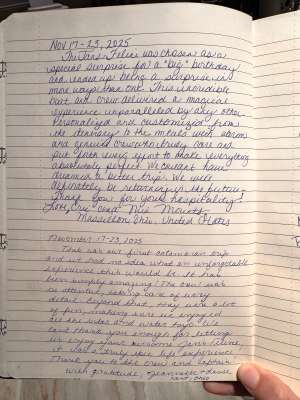 Nov 17-23, 2025
The Jans Felion was chosen as a
special surprise for a "big" birthday
and ended up being a surprise in
more ways than one. This incredible
boat and crew delivered a magical
experience unparalleled by any other.
Personalized and customized from
the itinerary to the meals with
and genuine crew
put forth every effort to make everything
absolutely perfect. We couldn't have
dreamed a better trip. We will
definitely be returning in the future.
Thank you for your hospitality!
Massillon, Ohio, United States
November 17-23, 2025
This was our first catamaran trip
and we had no idea what an unforgettable
experience this would be. It has
been simply amazing! The crew was
so attentive, taking care of every
detail. Beyond that they were a lot
of fun, making sure we enjoyed
all the sites and water toys. We
can't thank you enough for letting
us enjoy your awesome
it was a truly epic life experience.
Thank you to the crew and Captain
with gratitude, Jeannette +